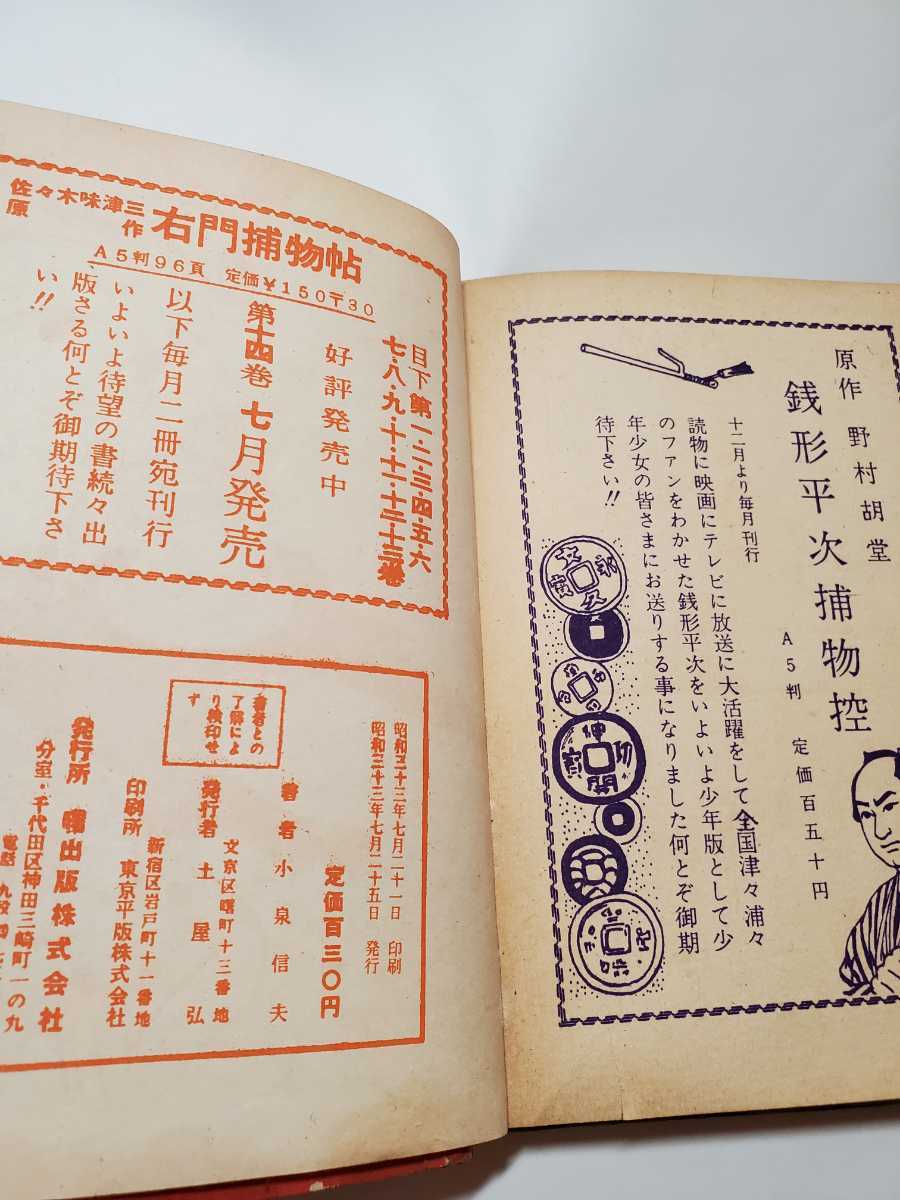 原作 野村胡堂
銭形平次捕物控
A5判 定価百五十円
十二月より毎月刊行
読物に映画にテレビに放送に大活躍をして全国津々浦々
のファンをわかせた銭形平次をいよいよ少年版として少
年少女の皆さまにお送りする事になりました何とぞ御期
待下さい!!
佐々木味津三
原作
右門捕物帖
A5判96頁 定価¥150〒30
目下第一・二・三・四・五・六
七・八・九・十・十一・十二・十三巻
好評発売中
第十四巻 七月発売
以下毎月二冊宛刊行
いよいよ待望の書続々出
版さる何とぞ御期待下さ
い!!
定価百三〇円
昭和三十三年七月二十一日 印刷
昭和三十三年七月二十五日 発行
著者との
了解によ
り検印せ
ず
著者 小泉信夫
文京区曙町十三番地
発行者 土屋弘
新宿区岩戸町十一番地
印刷所 東京平版株式会社
発行所 曙出版株式会社
分室・千代田区神田三崎町一の九
電話 九段